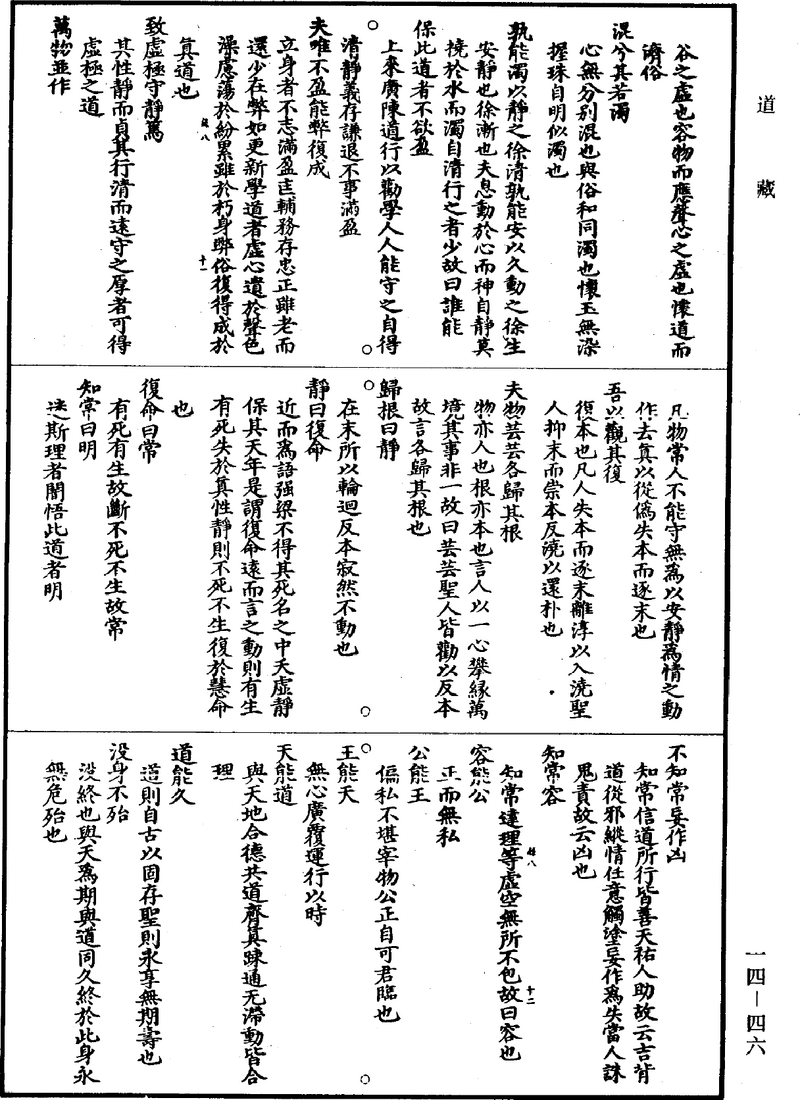 道藏
谷之虛也容物而應聲心之虛也懷道而
濟俗
混兮其若濁
心無分別混也與俗和同濁也懷玉無染
握珠自明似濁也
孰能濁以靜之徐清孰能安以久動之徐生
安靜也徐漸也夫息動於心而神自靜莫
撓於水而濁自清行之者少故曰誰能
保此道者不欲盈
上來廣陳道行以勸學人人能守之自得
清靜義存謙退不事滿盈
夫唯不盈能弊復成
立身者不志滿盈匡輔務存忠正雖老而
還少在弊如更新學道者虛心遺於聲色
澡慮蕩於紛累雖於朽身弊俗復得成於
真道也
致虛極守靜篤
其性靜而貞其行清而遠守之厚者可得
虛極之道
萬物並作
凡物常人不能守無為以安靜為情之動
作去真以從偽失本而逐末也
吾以觀其復
復本也凡人失本而逐末離淳以入澆聖
人抑末而崇本反澆以還朴也
夫物芸芸各歸其根
物亦人也根亦本也言人以一心攀緣萬
境其事非一故曰芸芸聖人皆勸以反本
故言各歸其根也
歸根曰靜
在末所以輪迴反本寂然不動也
靜曰復命
近而為語強梁不得其死名之中夭虛靜
保其天年是謂復命遠而言之動則有生
有死失於真性靜則不死不生復於慧命
也
復命曰常
有死有生故斷不死不生故常
知常曰明
迷斯理者闇悟此道者明
不知常妄作凶
知常信道所行皆善天祐人助故云吉背
道從邪縱情任意觸塗妄作為失當人誅
鬼責故云凶也
知常容
知常達理等虛空無所不包故曰容也
容能公
正而無私
公能王
偏私不堪宰物公正自可君臨也
王能天
無心廣覆運行以時
天能道
與天地合德共道齊真疎通无滯動皆合
理
道能久
道則自古以固存聖則永享無期壽也
没身不殆
没終也與天為期與道同久終於此身永
無危殆也
十一
十二
一四－四六